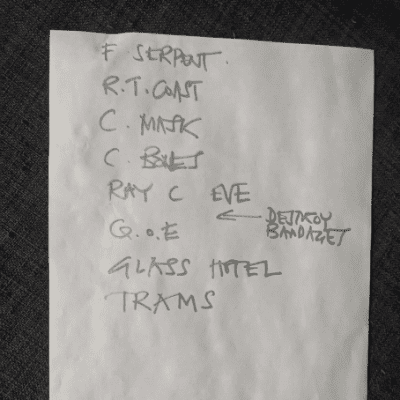 F SERPENT.
R.T. COAST
C. MASK
C. BONES
RAY C EVE
Q.O.E ← DESTROY
BANDAGES
GLASS HOTEL
TRAMS